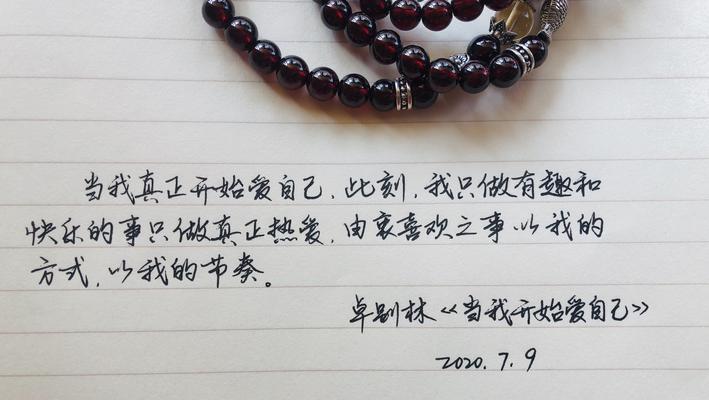 当我真正开始爱自己,此刻,我只做有趣和
快乐的事只做真正热爱,由衷喜欢之事以我的
方式,以我的节奏。
卓别林《当我开始爱自己》
2020.7.9